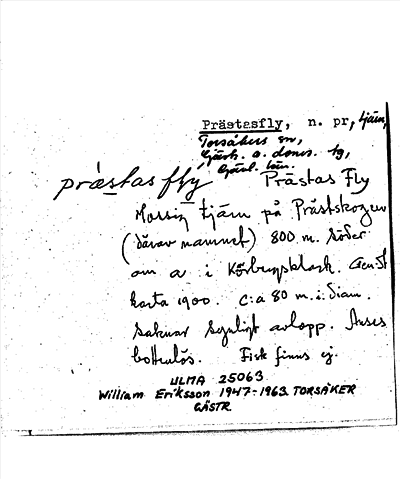 Prästasfly, n. pr, tjärn,
Torsåkers sn,
Gästr. o. doms. tg,
Gävl. län.
præstas fly Prästas Fly
Mossig tjärn på Prästskogen
(därav namnet) 800 m. söder
om a i Körbergsklack. Gen.St
karta 1900. C:a 80 m. i diam.
Saknar synligt avlopp. Anses
bottenlös. Fisk finns ej.
ULMA 25063
William Eriksson 1947-1963 TORSÅKER
GÄSTR